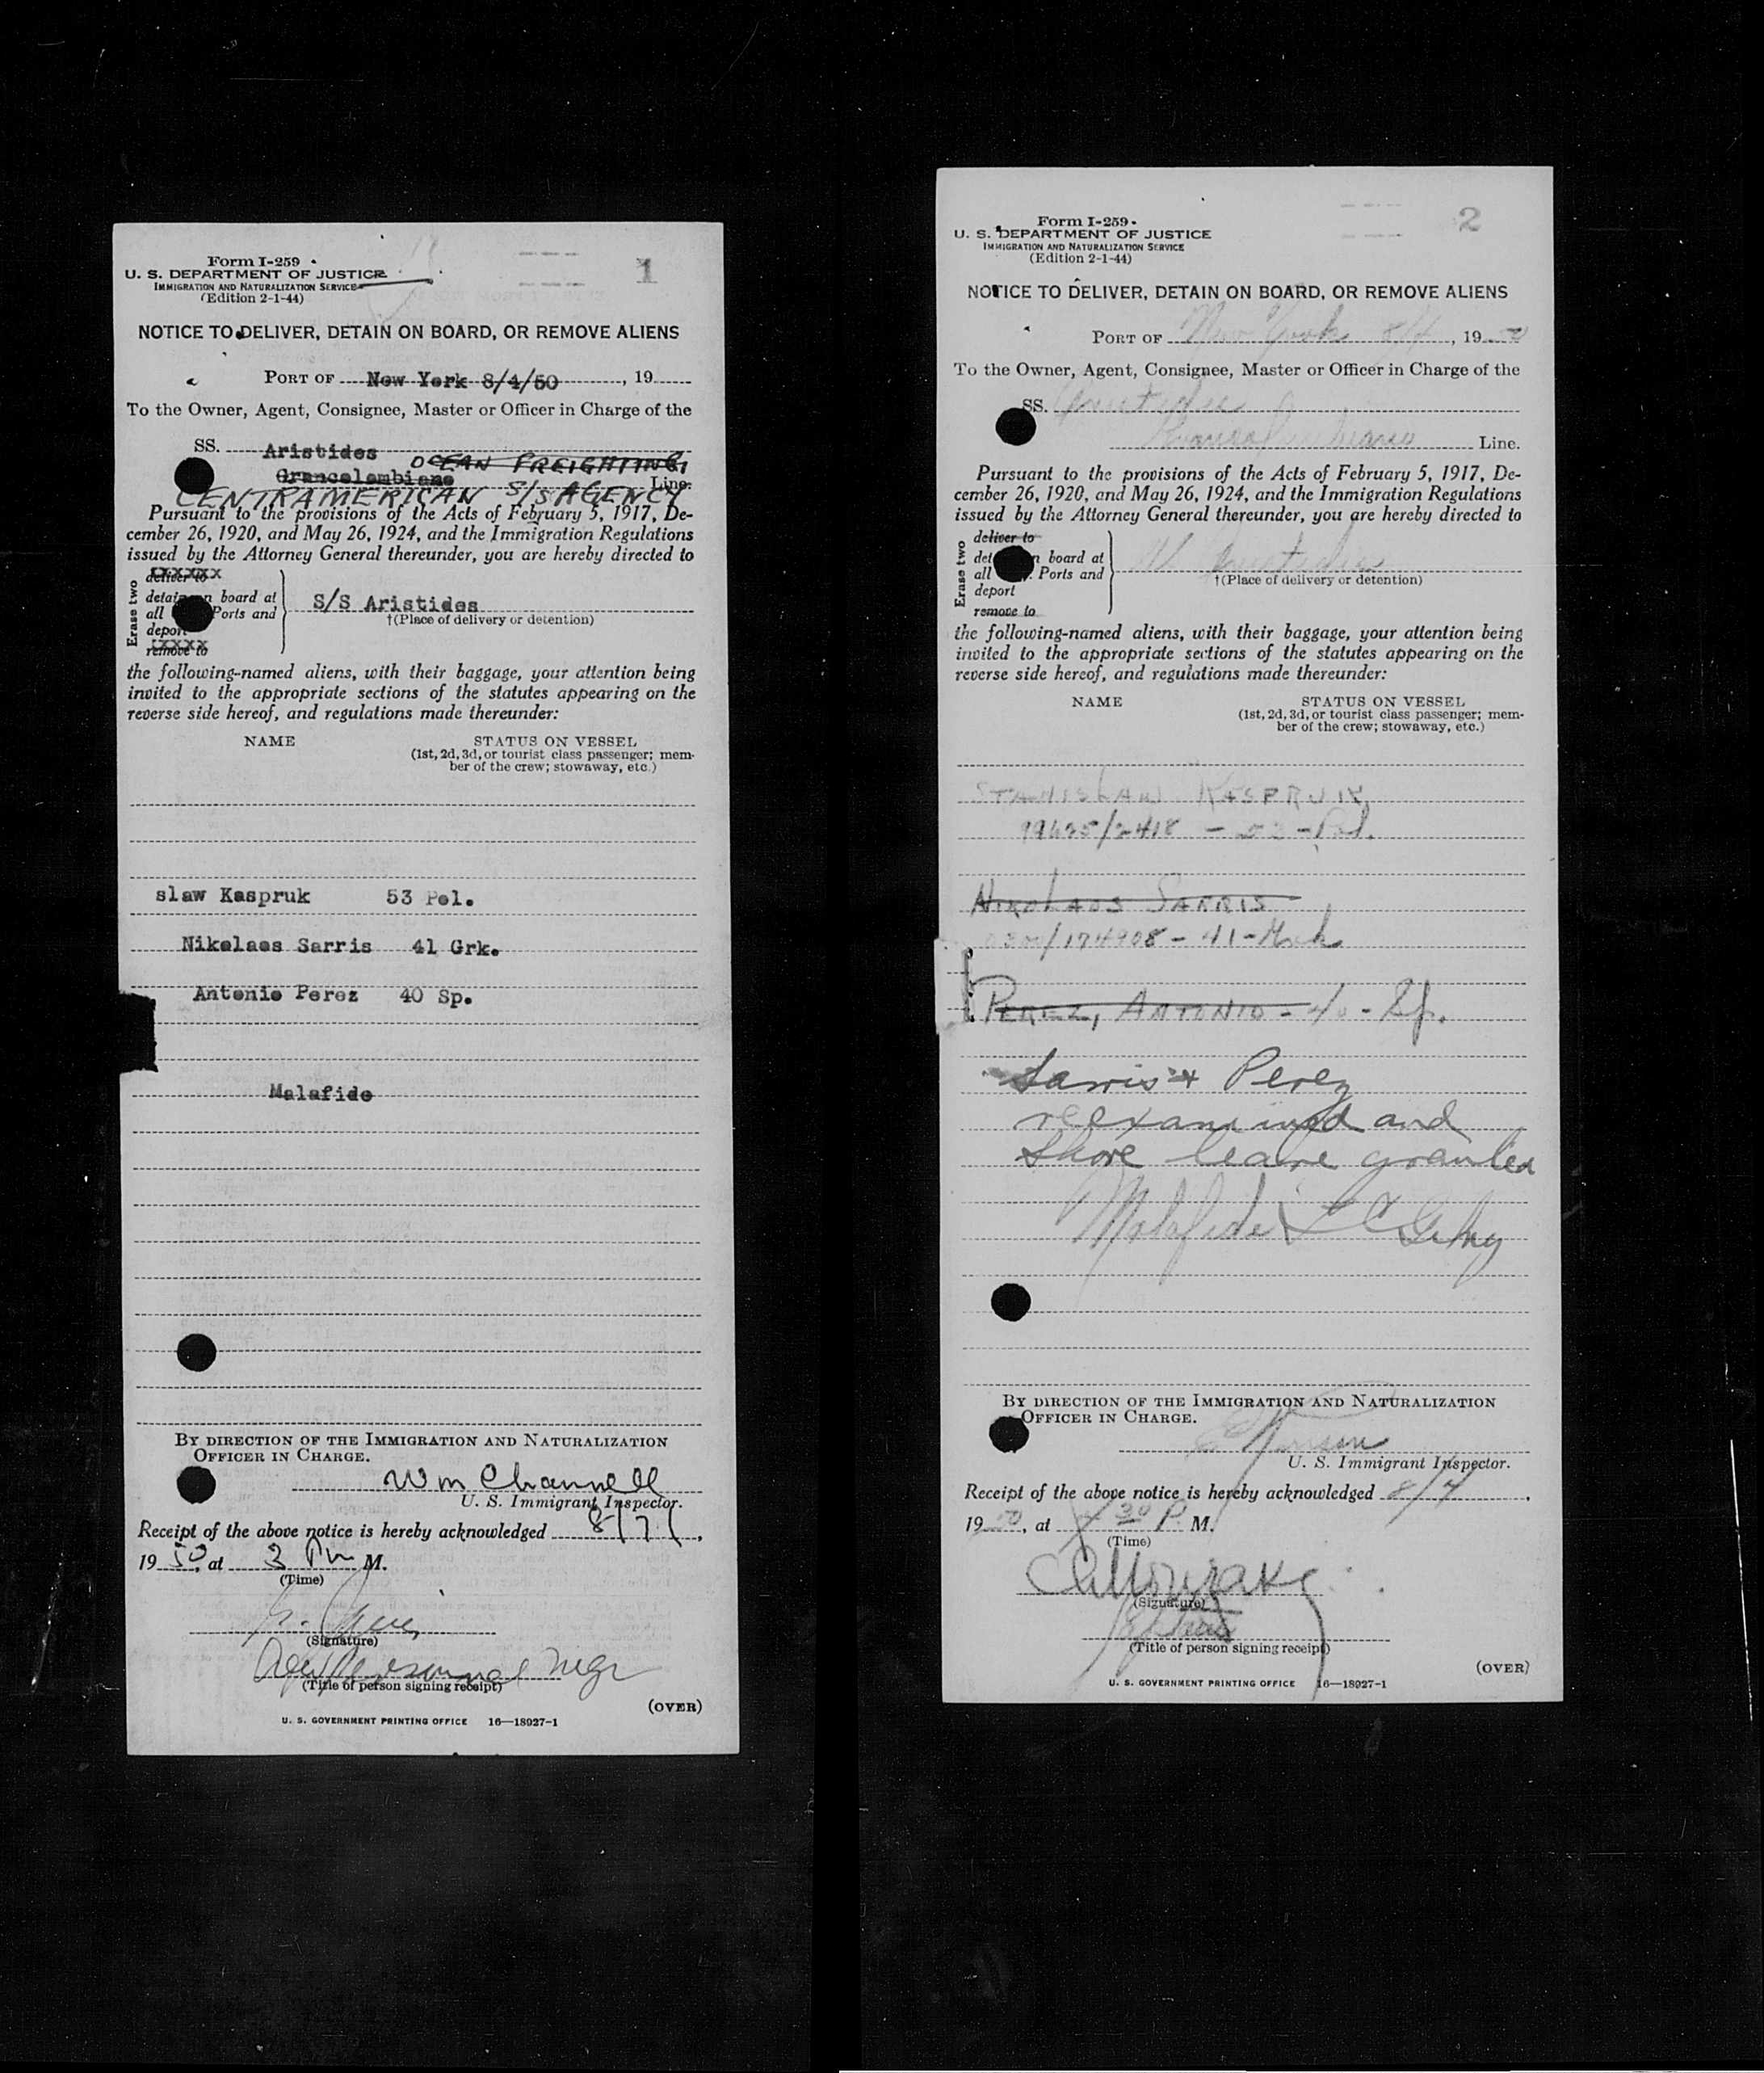 Form I-259
U. S. DEPARTMENT OF JUSTICE
IMMIGRATION AND NATURALIZATION SERVICE
(Edition 2-1-44)
1
NOTICE TO DELIVER, DETAIN ON BOARD, OR REMOVE ALIENS
PORT OF New York 8/4/50, 19
To the Owner, Agent, Consignee, Master or Officer in Charge of the
SS. Aristides
OCEAN FREIGHTING,
Grancolombiano Line.
CENTRAMERICAN S/S AGENCY
Pursuant to the provisions of the Acts of February 5, 1917, De-
cember 26, 1920, and May 26, 1924, and the Immigration Regulations
issued by the Attorney General thereunder, you are hereby directed to
Erase two
deliver to
detain on board at
all Ports and
deport
remove to
S/S Aristides
†(Place of delivery or detention)
the following-named aliens, with their baggage, your attention being
invited to the appropriate sections of the statutes appearing on the
reverse side hereof, and regulations made thereunder:
NAME STATUS ON VESSEL
(1st, 2d, 3d, or tourist class passenger; mem-
ber of the crew; stowaway, etc.)
slaw Kaspruk 53 Pol.
Nikolaos Sarris 41 Grk.
Antonio Perez 40 Sp.
Malafide
BY DIRECTION OF THE IMMIGRATION AND NATURALIZATION
OFFICER IN CHARGE.
Wm Channell
U. S. Immigrant Inspector.
Receipt of the above notice is hereby acknowledged 8/7,
1950, at 3 Pm M.
(Time)
(Signature)
Mgr
(Title of person signing receipt)
(OVER)
U. S. GOVERNMENT PRINTING OFFICE 16—18927-1
Form I-259
U. S. DEPARTMENT OF JUSTICE
IMMIGRATION AND NATURALIZATION SERVICE
(Edition 2-1-44)
2
NOTICE TO DELIVER, DETAIN ON BOARD, OR REMOVE ALIENS
PORT OF New York 8/4, 1950
To the Owner, Agent, Consignee, Master or Officer in Charge of the
SS.
Line.
Pursuant to the provisions of the Acts of February 5, 1917, De-
cember 26, 1920, and May 26, 1924, and the Immigration Regulations
issued by the Attorney General thereunder, you are hereby directed to
Erase two
deliver to
detain on board at
all Ports and
deport
remove to
†(Place of delivery or detention)
the following-named aliens, with their baggage, your attention being
invited to the appropriate sections of the statutes appearing on the
reverse side hereof, and regulations made thereunder:
NAME STATUS ON VESSEL
(1st, 2d, 3d, or tourist class passenger; mem-
ber of the crew; stowaway, etc.)
STANISLAW KASPRUK
Pol.
NIKOLAOS SARRIS
/174908 - 41 -
PEREZ, ANTONIO - 40 - Sp.
Sarris + Perez
reexamined and
shore leave granted
Malafide
BY DIRECTION OF THE IMMIGRATION AND NATURALIZATION
OFFICER IN CHARGE.
U. S. Immigrant Inspector.
Receipt of the above notice is hereby acknowledged 8/4,
1950, at 30 P. M.
(Time)
(Signature)
(Title of person signing receipt)
(OVER)
U. S. GOVERNMENT PRINTING OFFICE 16—18927-1